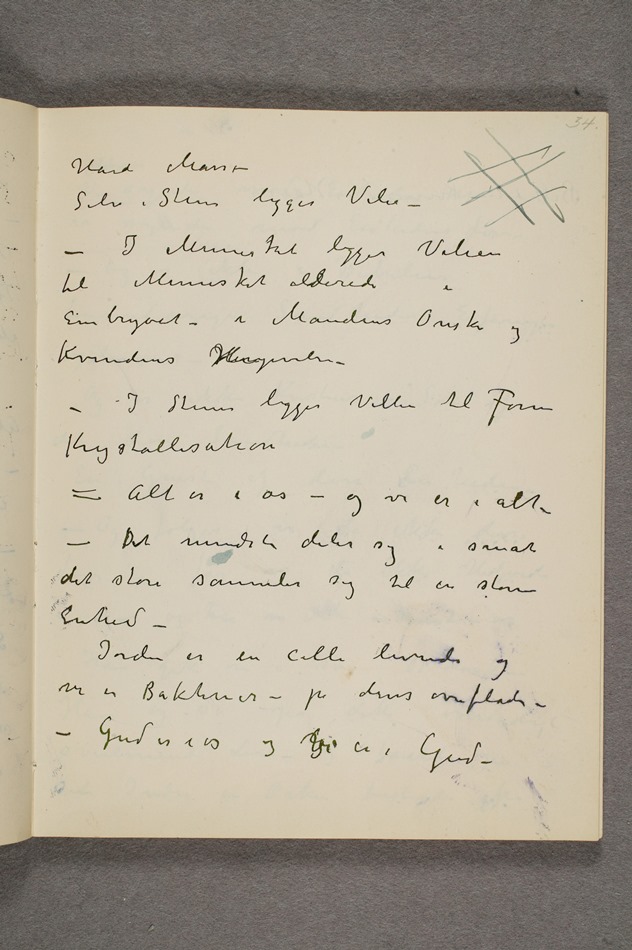 34.
Hård Masse
Selv i Stenen ligger Vilie –
– I Mennesket ligger Vilien
til Mennesket allerede i
Embryoet – i Mandens Ønske og
Kvindens
– I Stenen ligger Villien til Form
Krystallisation
= Alt er i os – og vi er i alt –
– Det mindste deler sig i småt
det store sammeler sig til en større
Enhed –
Jorden er en celle levende og
vi er Bakterier – på dens overflade –
– Gud er i os og vi er i Gud –